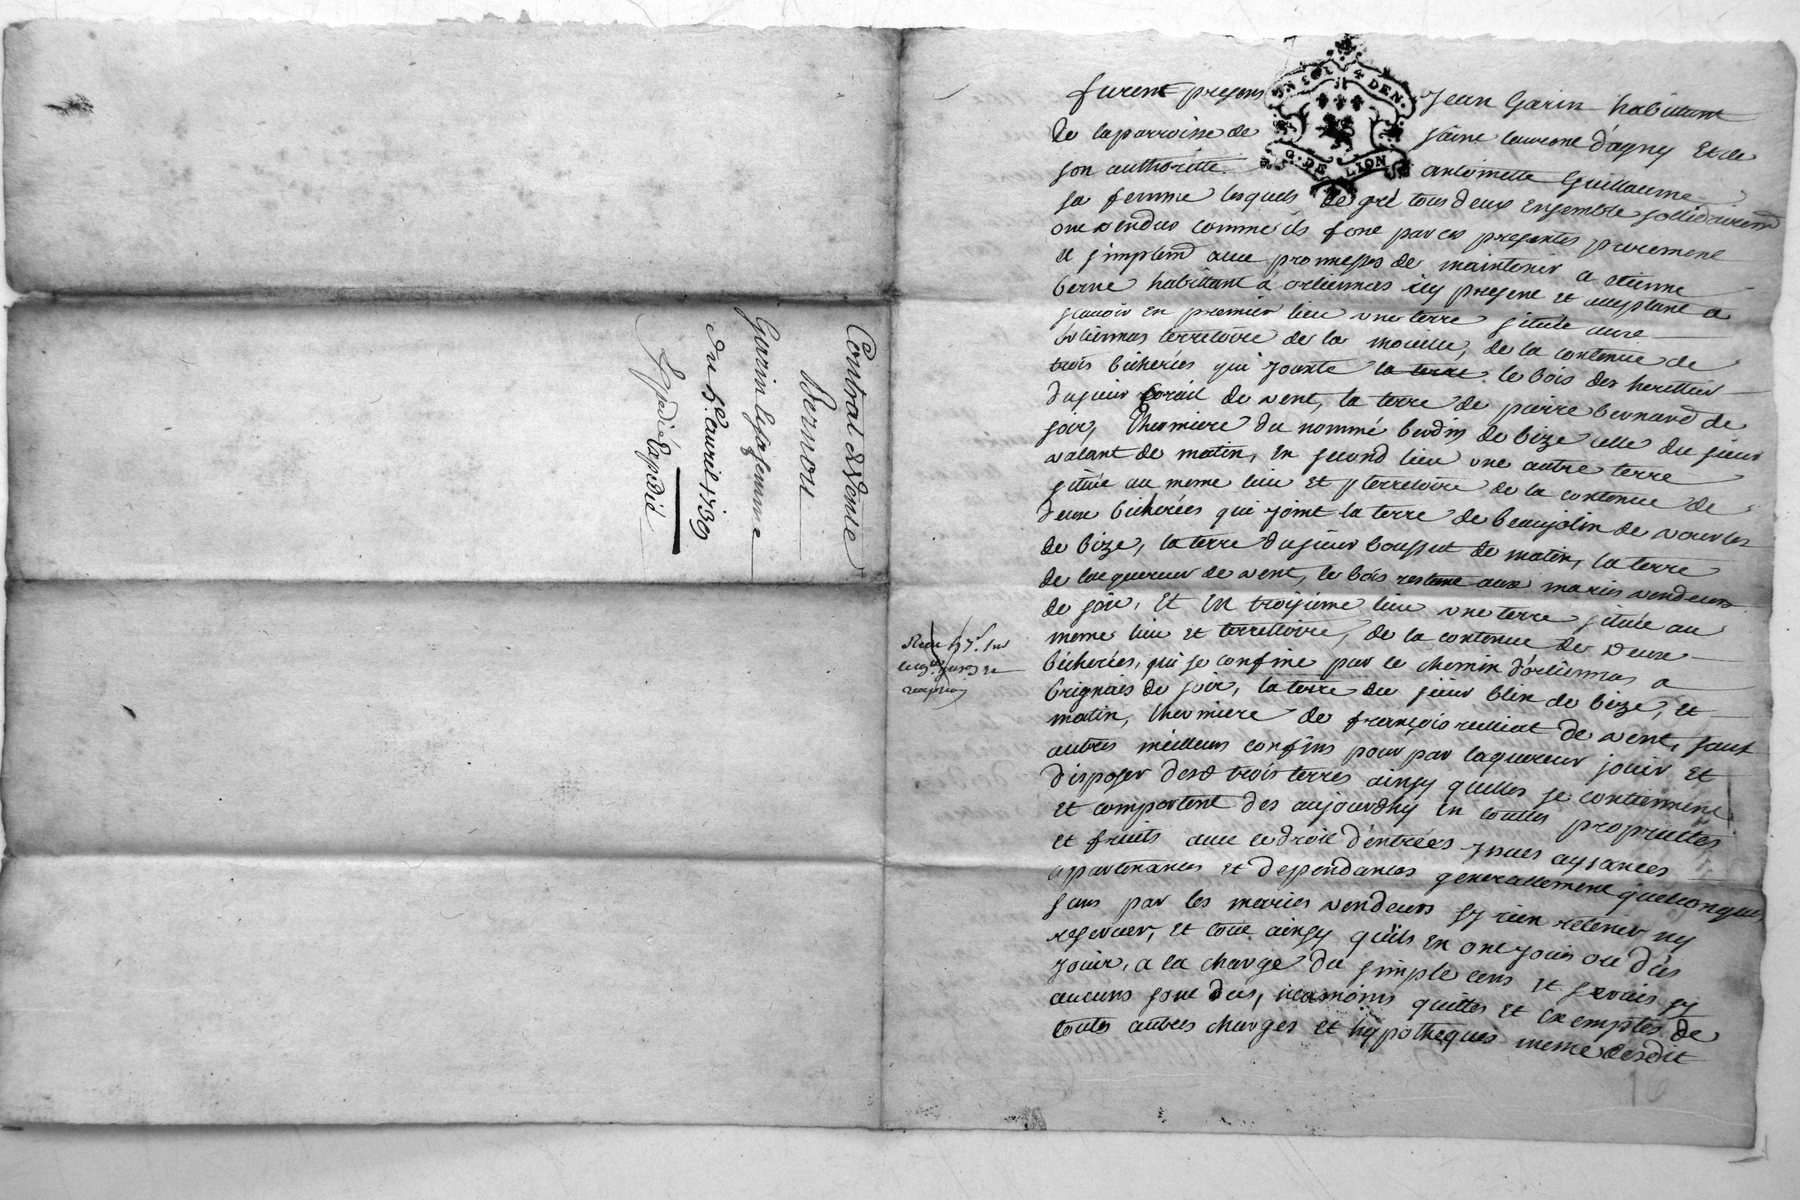 Contrat de Vente
Bernou
Garin & sa femme
du 5e. avril 1739
Expedié
Rapidil
UN SOL 4 DEN.
G. DE LION
furent presens Jean Garin habittant
de la parroisse de saint laurent d'agny Et de
son authoritté antoinette Guillaume
sa femme lesquels de gré tous deux Ensemble sollidairemt
ont vendus comme ils font par ces presentes purement
et simplemt avec promesses de maintenir a etienne
berne habittant a orliennas icy present et acceptant a
scavoir En premier lieu une terre scituée aure
orliennas territoire de la mouille, de la contenue de
trois bicherées qui jouxte la terre le bois des heretiers
du sieur Corail de vent, la terre de pierre bernard de
soir, Chenniere du nommé berdin de bize celle du sieur
valant de matin, En second lieu une autre terre
scituée au meme lieu Et territoire de la contenue de
deux bicherées qui joint la terre de beaujolin de vourles
de bize, la terre du sieur boussut de matin, la terre
de lacquereur de vent, le bois restant aux mariés vendeurs
de soir, Et En troisieme lieu une terre scituée au
meme lieu Et territtoire, de la contenue de deux
bicherées, qui se confine par le chemin d'orliennas a
brignais de soir, la terre du sieur blin de bize, Et
matin, Chenniere de françois relliat de vent, sauf
autres meilleurs confins pour par lacquereur jouir Et
disposer desd trois terres ainsy quelles se contiennent
Et comportent des aujourdhy En touttes proprietées
Et fruits avec ce droit d'entrées yssues aysances
appartenances Et dependances generallement quelconques
sans par les mariés vendeurs sy rien retenir ny
reserver, Et tout ainsy qu'ils En ont jouis ou dus
jouir, a la charge du simple cens Et servis sy
aucuns sont dus, neamoins quittes Et Exemptes de
toutes autres charges Et hypotheques meme desdit
16